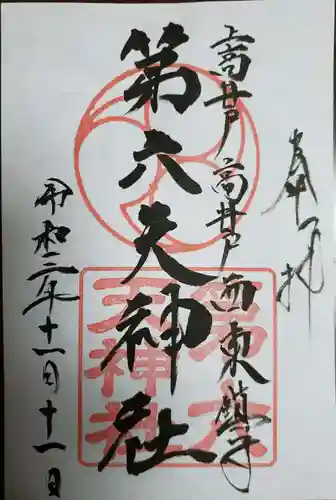 奉拝
上高井戸高井戸西東鎮守
第六天神社
令和二年十一月十一日
第六天神社